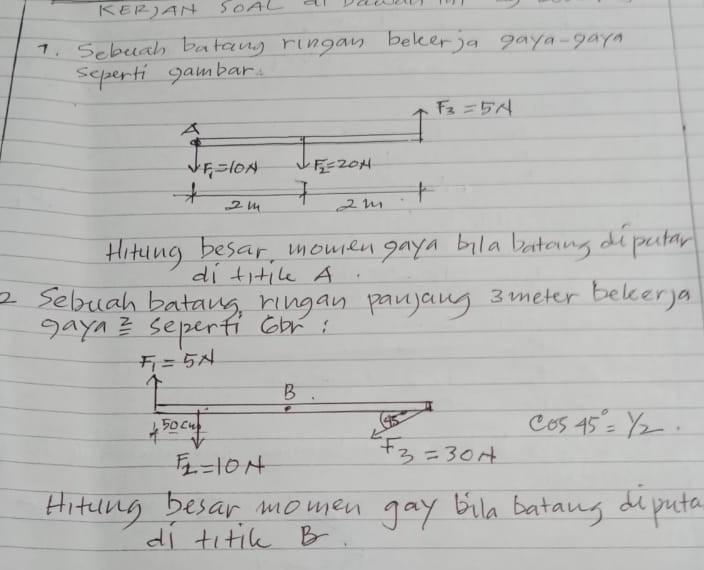 KERJAN SOAL di
1. Sebuah batang ringan bekerja gaya-gaya
seperti gambar.
A
F3 = 5N
F1=10N
F2=20N
2m
2m
Hitung besar momen gaya bila batang diputar
di titik A.
2 Sebuah batang ringan panjang 3 meter bekerja
gaya 2 seperti Gbr :
F1 = 5N
B
50 cm
45°
cos 45° = 1/2.
F2=10N
F3 = 30N
Hitung besar momen gay bila batang diputa
di titik B.